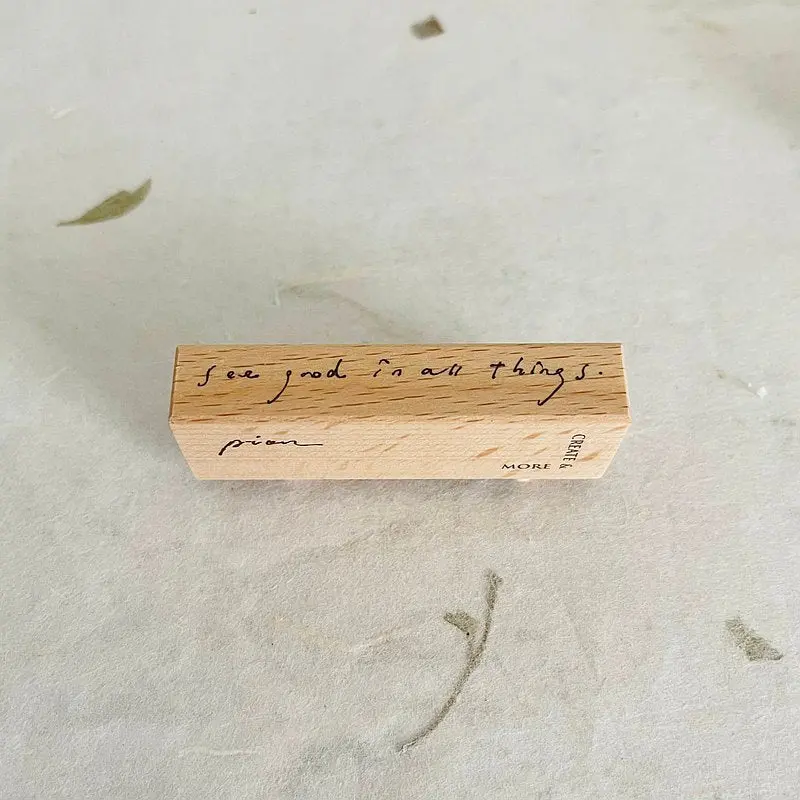 see good in all things.
pion
CREATE &
MORE